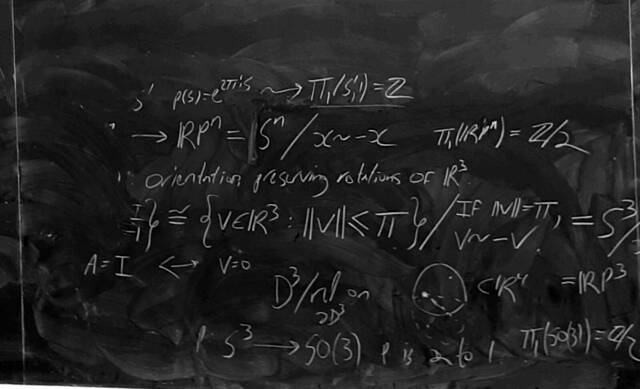 S¹ p(s)=e^{2πis} ⇝ π₁(S¹,1) = ℤ
" → ℝPⁿ = Sⁿ / x~-x π₁(ℝPⁿ) = ℤ/2
orientation preserving rotations of ℝ³
} ≅ {v∈ℝ³ : ||v|| ≤ π} / If ||v||=π, v~-v = S³/
A = I ↔ v=0
D³/~ on ∂D³ ⊂ℝ⁴ = ℝP³
p S³ → SO(3) p is 2 to 1 π₁(SO(3)) = ℤ/2